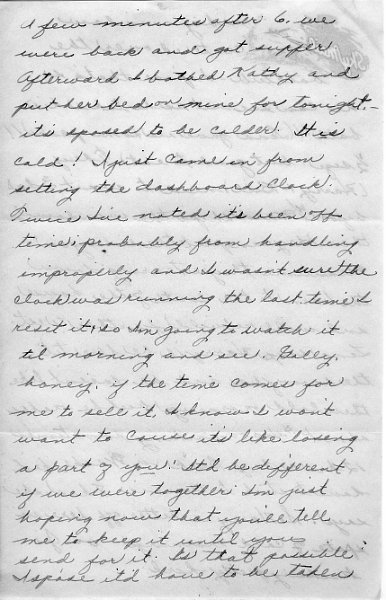 A few minutes after 6, we
were back and got supper
Afterward I bathed Kathy and
put her bed on mine for tonight -
it's sposed to be colder. It is
cold! I just came in from
setting the dashboard clock.
Twice I've noted it's been off
time; probably from handling
improperly and I wasn't sure the
clock was running the last time I
reset it, so I'm going to watch it
til morning and see. Golly,
honey, if the time comes for
me to sell it, I know I won't
want to cause it's like losing
a part of you! It'd be different
if we were together. I'm just
hoping now that you'll tell
me to keep it until you
send for it. Is that possible?
I spose it'd have to be taken